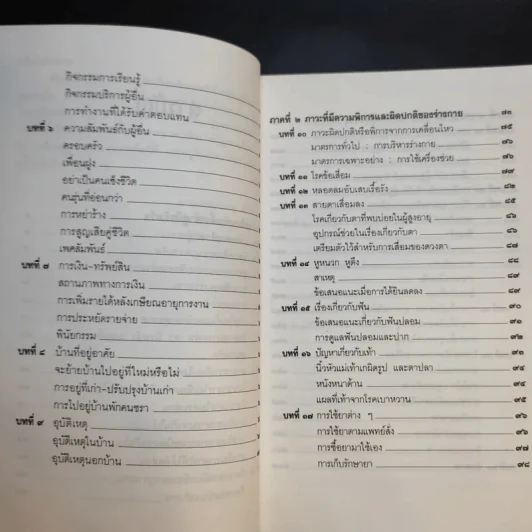 กิจกรรมการเรียนรู้
กิจกรรมบริการผู้อื่น
การทำงานที่ได้รับค่าตอบแทน
บทที่ ๖ ความสัมพันธ์กับผู้อื่น
ครอบครัว
เพื่อนฝูง
อย่าเป็นคนเซ็งชีวิต
คนรุ่นที่อ่อนกว่า
การหย่าร้าง
การสูญเสียคู่ชีวิต
เพศสัมพันธ์
บทที่ ๗ การเงิน-ทรัพย์สิน
สถานภาพทางการเงิน
การเพิ่มรายได้หลังเกษียณอายุการงาน
การประหยัดรายจ่าย
พินัยกรรม
บทที่ ๘ บ้านที่อยู่อาศัย
จะย้ายบ้านไปอยู่ที่ใหม่หรือไม่
การอยู่ที่เก่า-ปรับปรุงบ้านเก่า
การไปอยู่บ้านพักคนชรา
บทที่ ๙ อุบัติเหตุ
อุบัติเหตุในบ้าน
อุบัติเหตุนอกบ้าน
ภาคที่ ๒ ภาวะที่มีความพิการและผิดปกติของร่างกาย ๗๓
บทที่ ๑๐ ภาวะผิดปกติหรือพิการจากการเคลื่อนไหว ๗๕
มาตรการทั่วไป : การบริหารร่างกาย ๗๖
มาตรการเฉพาะอย่าง : การใช้เครื่องช่วย ๗๖
บทที่ ๑๑ โรคข้อเสื่อม ๗๙
บทที่ ๑๒ หลอดลมอักเสบเรื้อรัง
บทที่ ๑๓ สายตาเสื่อมลง ๘๕
โรคเกี่ยวกับตาที่พบบ่อยในผู้สูงอายุ ๘๕
อุปกรณ์ช่วยในเรื่องเกี่ยวกับตา ๘๖
เตรียมตัวไว้สำหรับการเสื่อมของดวงตา ๘๗
บทที่ ๑๔ หูหนวก หูตึง ๘๘
สาเหตุ ๘๘
ข้อเสนอแนะเมื่อการได้ยินลดลง ๘๙
บทที่ ๑๕ เรื่องเกี่ยวกับฟัน ๙๐
ข้อเสนอแนะเกี่ยวกับฟันปลอม ๙๑
การดูแลฟันปลอมและปาก ๙๒
บทที่ ๑๖ ปัญหาเกี่ยวกับเท้า ๙๓
นิ้วหัวแม่เท้าเกิดผิดรูป และตาปลา ๙๔
หนังหนาด้าน ๙๔
แผลที่เท้าจากโรคเบาหวาน ๙๕
บทที่ ๑๗ การใช้ยาต่าง ๆ ๙๖
การใช้ยาตามแพทย์สั่ง ๙๖
การซื้อยามาใช้เอง ๙๗
การเก็บรักษายา ๙๘